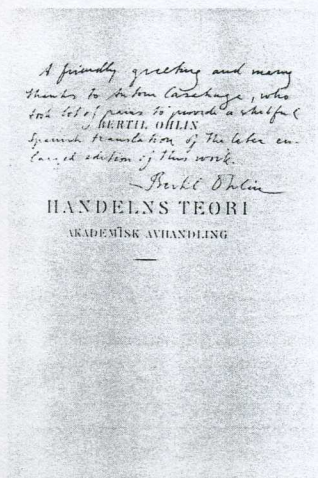 A friendly greeting and many
thanks to Antoni Casahuga, who
took lot of pains to provide a
BERTIL OHLIN
Spanish translation of the later en-
larged edition of this work.
Bertil Ohlin
HANDELNS TEORI
AKADEMISK AVHANDLING